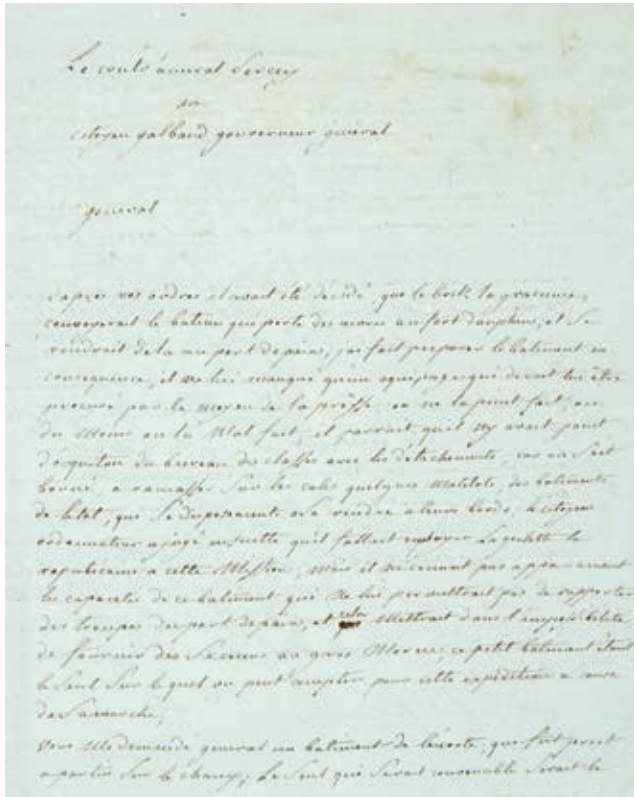 Le contre amiral Sercey
au
citoyen galbaud gouverneur général
général
d'apres vos ordres il avait été décidé, que le brik la gracieuse,
convoyerait le bateau qui porte des noirs au fort dauphin, et se
rendrait de la au port de paix, j'ai fait preparer le batiment en
consequence, il ne lui manque qu'un equipage qui devait lui être
procuré par le moyen de la presse on ne la point fait, ou
du moins on la mal fait, il parait qu'il ny avait point
du bureau des classes avec les détachements car on sait
borné, a ramasser sur les cales quelques matelots des batiments
de letat, que se disposaient a se rendre a leurs bords, le citoyen
ordonnateur a jugé ensuitte qu'il fallait employer la goelette la
republicaine a cette mission, mais il ne connait pas
les capacités de ce batiment qui ne lui permettrait pas de rapporter
des troupes du port de paix, et cela mettrait dans l'impossibilité
de fournir des secours au gros morne, ce petit batiment étant
le seul sur lequel on peut compter pour cette expedition a cause
de sa marche,
vous me demandé general un batiment de l'escorte, que soit pret
a partir sur le champ, le seul qui serait convenable serait le